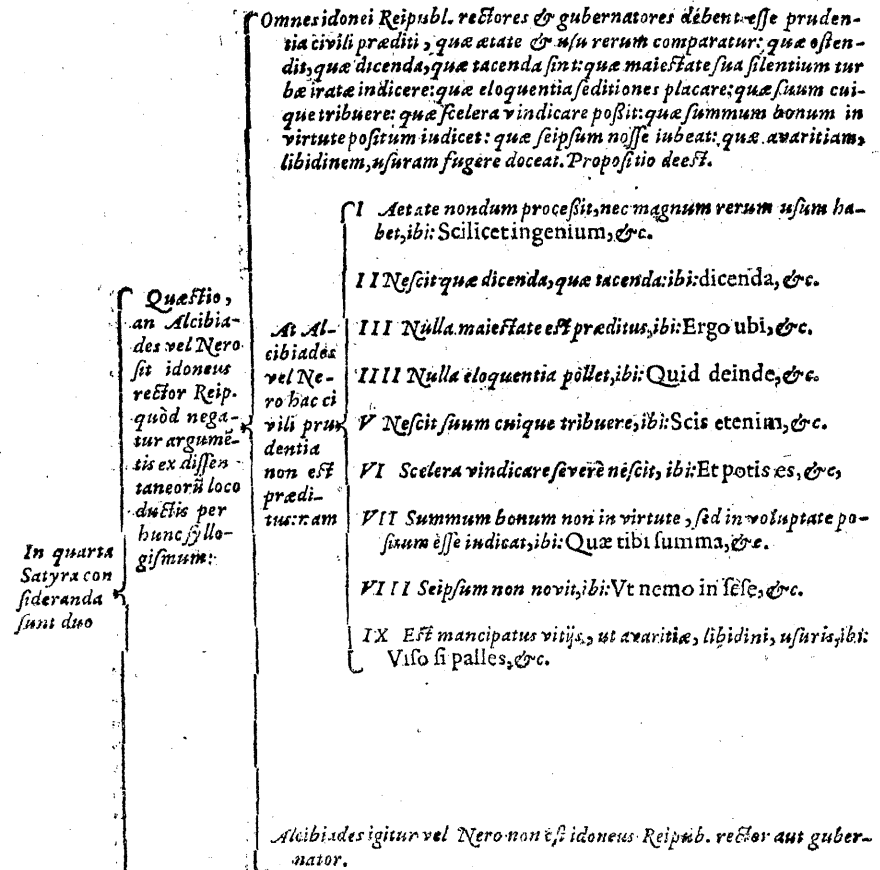 In quarta
Satyra con
sideranda
sunt duo
Quæstio,
an Alcibia-
des vel Nero
sit idoneus
rector Reip.
quòd nega-
tur argumē-
tis ex dissen
taneorū loco
ductis per
hunc syllo-
gismum:
Omnes idonei Reipubl. rectores & gubernatores debent esse pruden-
tia civili præditi, quæ ætate & usu rerum comparatur: quæ osten-
dit, quæ dicenda, quæ tacenda sint: quæ maiestate sua silentium tur
bæ iratæ indicere: quæ eloquentia seditiones placare: quæ suum cui-
que tribuere: quæ scelera vindicare poßit: quæ summum bonum in
virtute positum iudicet: quæ seipsum nosse iubeat: quæ avaritiam,
libidinem, usuram fugere doceat. Propositio deest.
At Al-
cibiades
vel Ne-
ro hac ci
vili pru
dentia
non est
prædi-
tus: nam
I Aetate nondum proceßit, nec magnum rerum usum ha-
bet, ibi: Scilicet ingenium, &c.
II Nescit quæ dicenda, quæ tacenda: ibi: dicenda, &c.
III Nulla maiestate est præditus, ibi: Ergo ubi, &c.
IIII Nulla eloquentia pollet, ibi: Quid deinde, &c.
V Nescit suum cuique tribuere, ibi: Scis etenim, &c.
VI Scelera vindicare severè nescit, ibi: Et potis es, &c,
VII Summum bonum non in virtute, sed in voluptate po-
situm esse iudicat, ibi: Quæ tibi summa, &c.
VIII Seipsum non novit, ibi: Vt nemo in sese, &c.
IX Est mancipatus vitijs, ut avaritiæ, libidini, usuris, ibi:
Viso si palles, &c.
Alcibiades igitur vel Nero non est idoneus Reipub. rector aut guber-
nator.